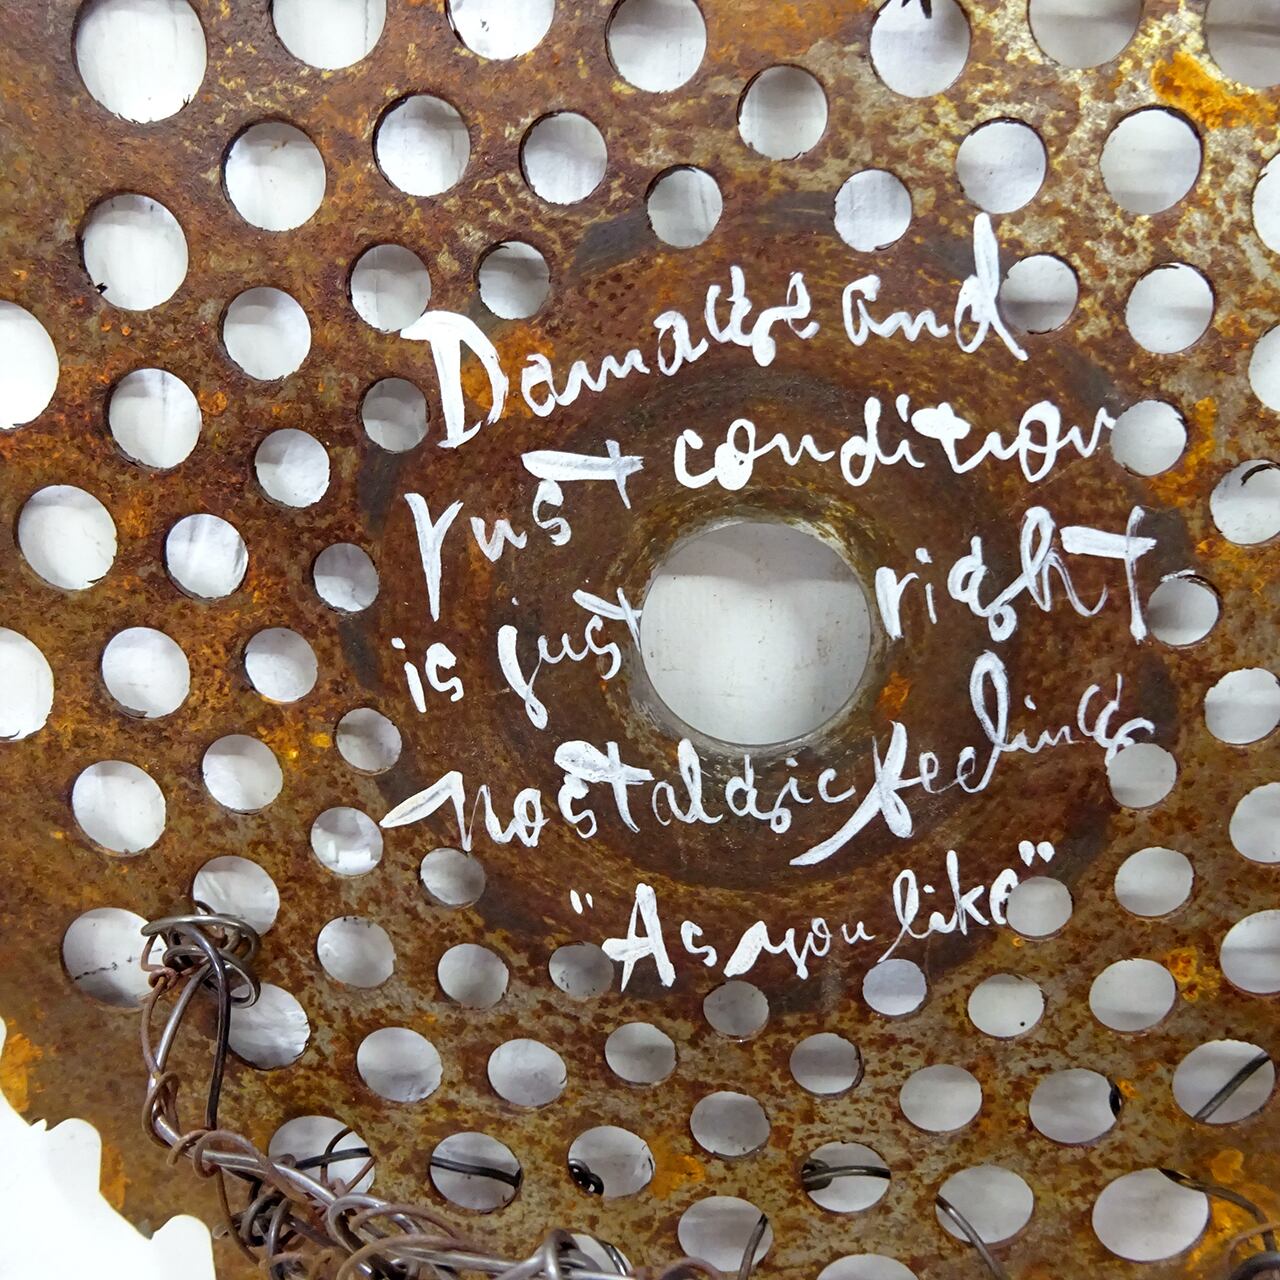 Damage and
rust condition
is just right
nostalgic feeling
"As you like"